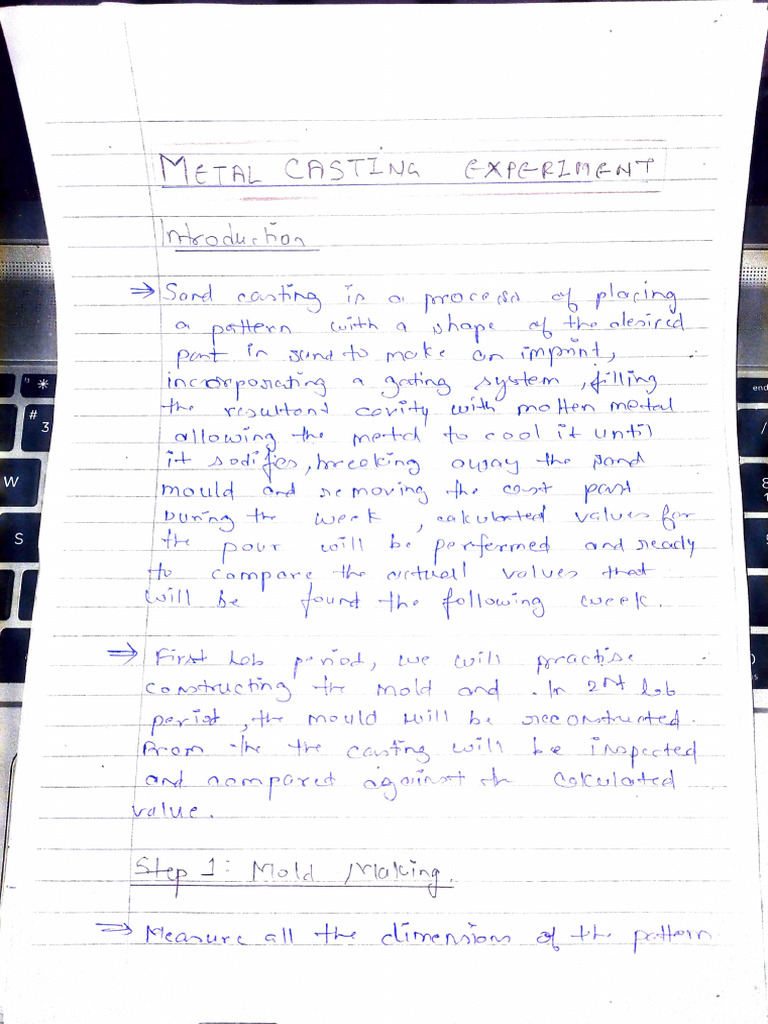 METAL CASTING EXPERIMENT
Introduction
⇒ Sand casting is a process of placing
a pattern with a shape of the desired
part in sand to make an imprint,
incorporating a gating system, filling
the resultant cavity with molten metal
allowing the metal to cool it until
it sodifies, breaking away the sand
mould and removing the cast part
During the week, calculated values for
the pour will be performed and ready
to compare the actuall values that
will be found the following week.
⇒ First Lab period, we will practise
constructing the mold and . In 2nd lab
period, the mould will be reconstructed.
From the the casting will be inspected
and compared against the calculated
value.
Step 1: Mold Making.
⇒ Measure all the dimensions of the pattern
#
3
W
S
*
end
/
8